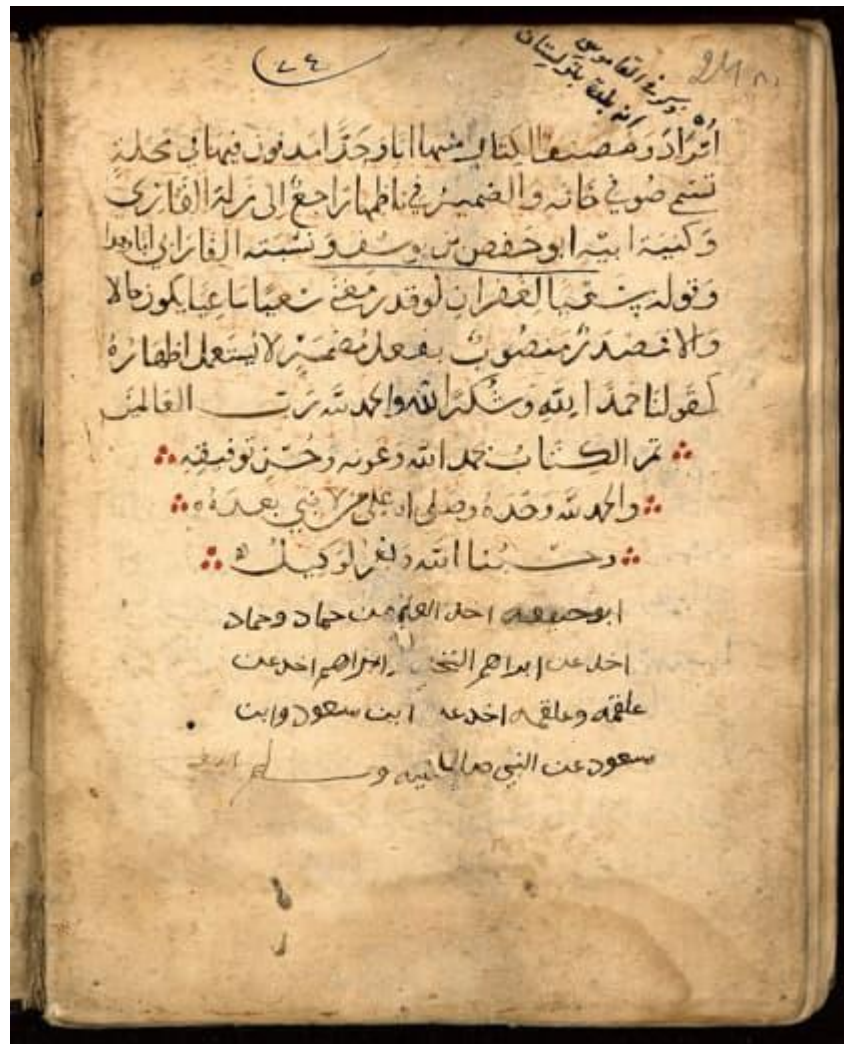 ٢٤
24
وفي القاموس
انه بلدة بتركستان
اترار ومصنف الكتاب منها ابا وجدا مدفون فيها في محلة
تسمى صوفي خانه والضمير في ناظمها راجع الى زلة القارئ
وكنية ابيه ابو حفص بن يوسف ونسبته الفارابي ابا وجدا
وقوله سقيا لغفران لو قدر
والا فمصدر منصوب بفعل مضمر لا يستعمل اظهاره
كقولنا حمدا لله وشكرا لله والحمد لله رب العالمين
تم الكتاب بحمد الله وعونه وحسن توفيقه
والحمد لله وحده وصلى الله على من لا نبي بعده
وحسبنا الله ونعم الوكيل
ابو حنيفه اخذ العلم من حماد وحماد
اخذ عن ابراهم النخعي وابراهم اخذ عن
علقمه وعلقمه اخذ عن ابن مسعود وابن
مسعود عن النبي صلى الله عليه وسلم